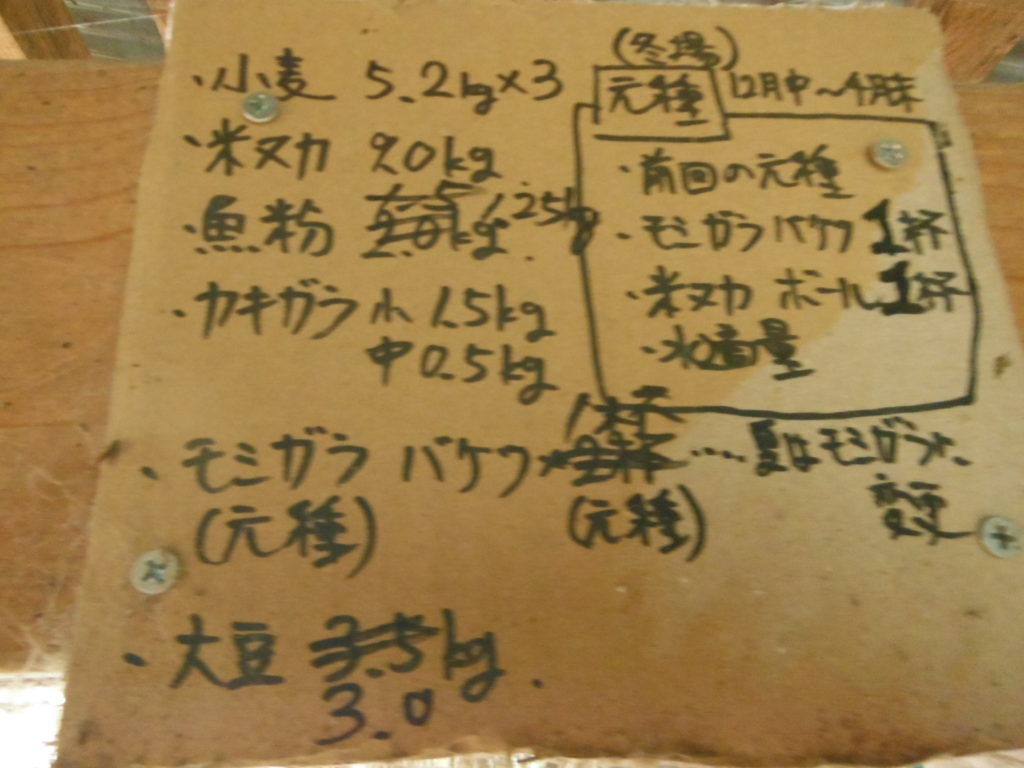 ・小麦 5.2kg×3
・米ヌカ 9.0kg
・魚粉 1.25kg
・カキガラ 小 1.5kg
中 0.5kg
・モミガラ バケツ× 1杯 ‥‥夏はモミガラに
(元種) (元種) 変更
・大豆 3.5kg.
3.0
(冬場)
元種 12月中～4月末
・前回の元種
・モミガラバケツ1杯
・米ヌカ ボール1杯
・水適量